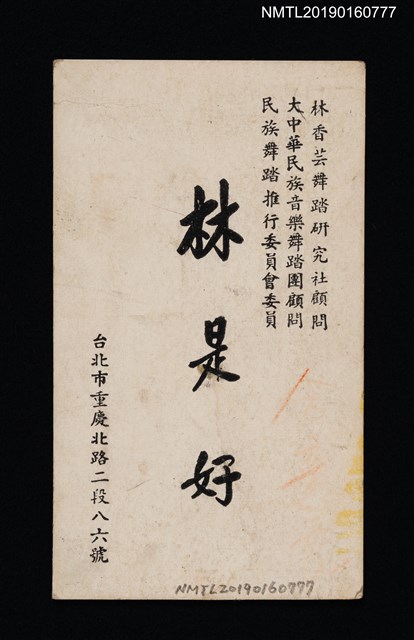 NMTL20190160777
林香芸舞蹈研究社顧問
大中華民族音樂舞蹈團顧問
民族舞蹈推行委員會委員
林是好
台北市重慶北路二段八六號
NMTL20190160777